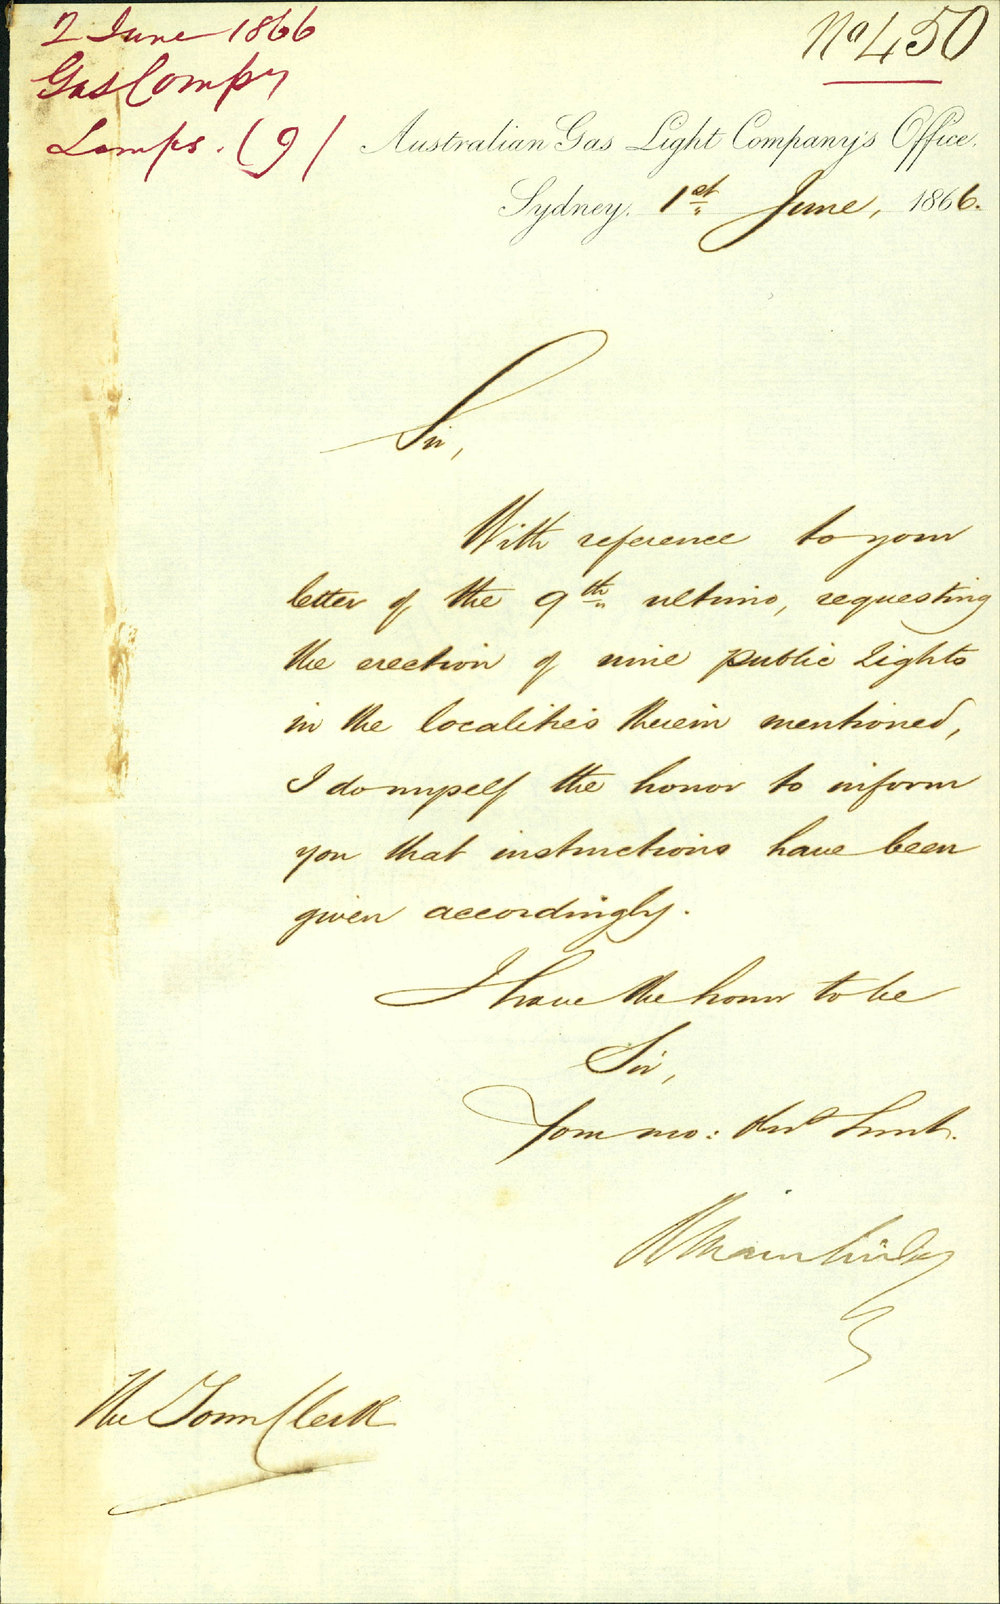 2 June 1866
Gas Compy
Lamps. (9)
No 450
Australian Gas Light Company's Office.
Sydney. 1st June, 1866.
Sir,
With reference to your
letter of the 9th ultimo, requesting
the erection of nine public lights
in the localities therein mentioned,
I do myself the honor to inform
you that instructions have been
given accordingly.
I have the honor to be
Sir,
Your mo: Obt Servt.
The Town Clerk